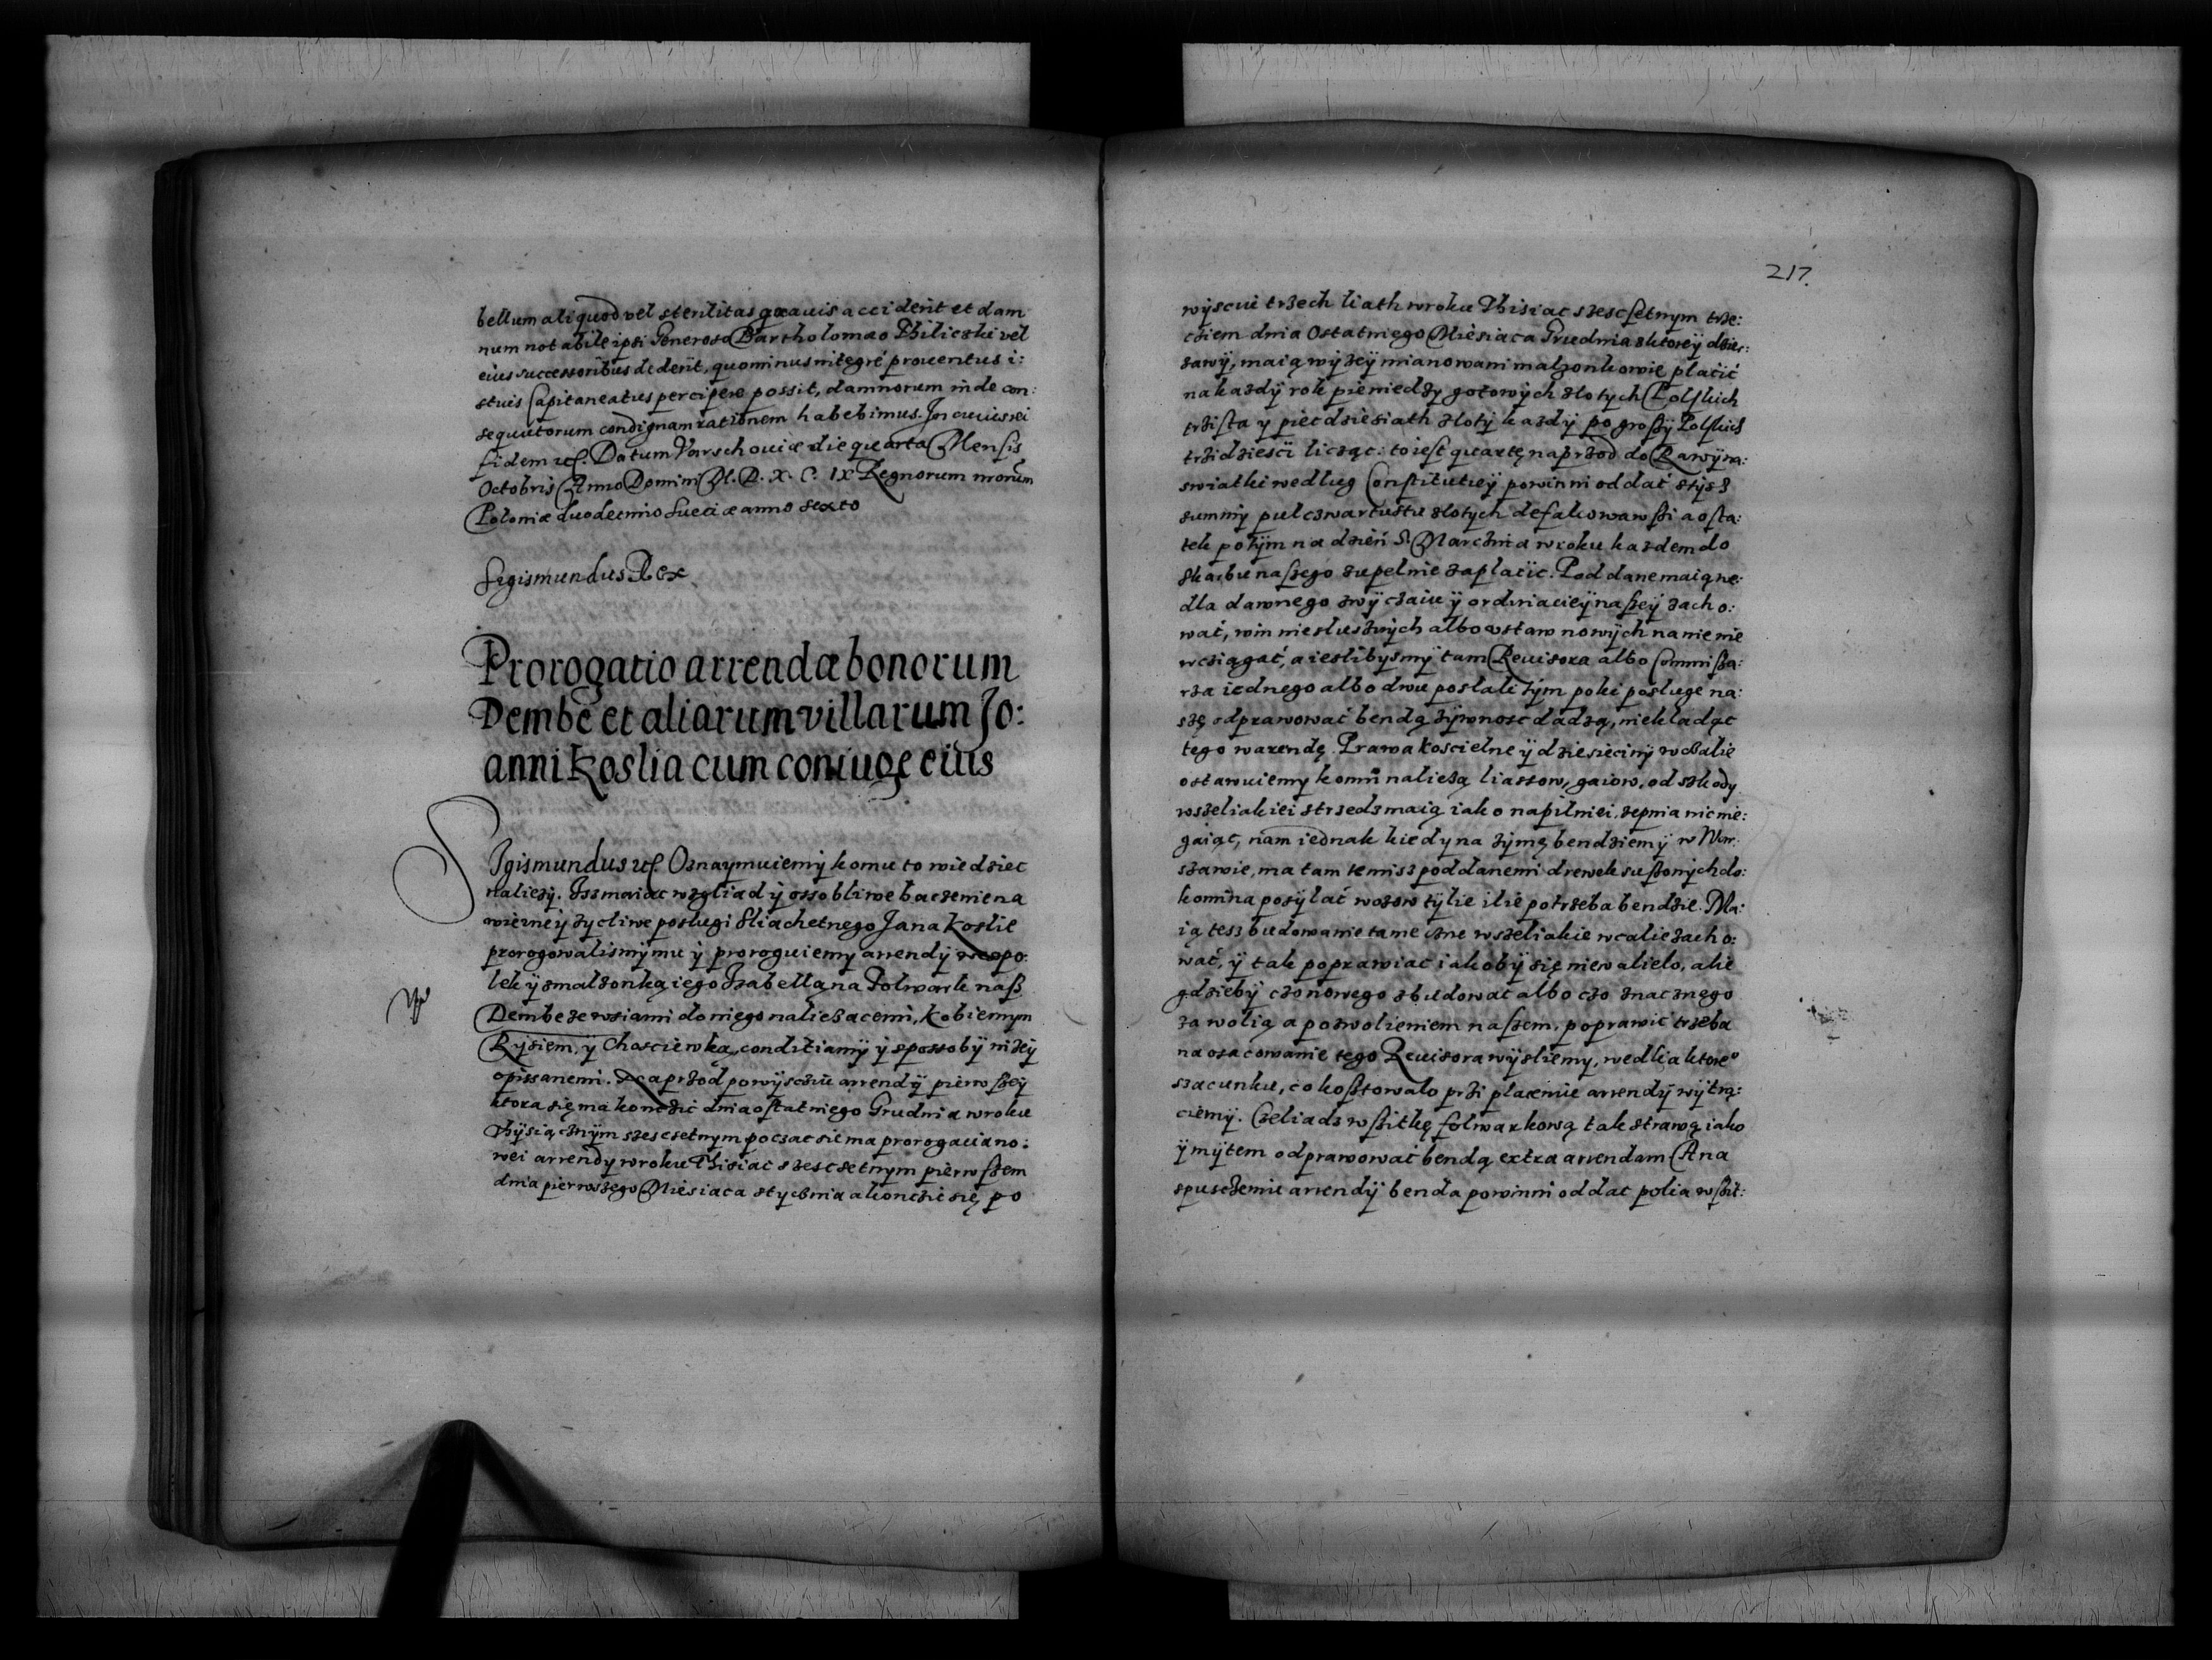 bellum aliquod vel sterilitas gravis acciderit et dam
num notabile ipsi Generoso Bartholomæo Thilicski vel
eius successoribus dederit, quominus integré proventus i:
stuis Capitaneatus percipere possit, damnorum inde con:
sequutorum condignam rationem habebimus. In cuius rei
fidem etc. Datum Varschoviæ die quarta Mensis
Octobris Anno Domini M. D. X. C. IX Regnorum nrorum
Poloniæ duodecimo Sueciæ anno sexto
Sigismundus Rex
Prorogatio arrendæ bonorum
Dembe et aliarum villarum Jo:
anni Koslia cum coniuge eius
Sigismundus etc. Oznaymuiemÿ komu to wiedziec
nalieżÿ. Isz maiąc wzgliąd ÿ ossobliwe baczenie na
wierne ÿ życzliwe posługi Sliachetnego Jana Koslie
prorogowalismÿ mu ÿ proroguiemy arrendÿ wespo:
lek ÿ z malżonką iego Izabellą na Folwark nasz
Dembe ze wsiami do niego naliezacemi, Kobiennym
Rÿsiem, ÿ Choscięwką, conditiamÿ ÿ spossobÿ niżeÿ
opissanemi. Naprzod po wÿsczu arrendÿ pierwszeÿ
ktora się ma konczic dnia ostatniego Grudnia w roku
Thÿsiącznÿm szescsetnym począc sie ma prorogacia no:
wei arrendy w roku Thisiac szescsetnym pierwszem
dnia pierwszego Miesiaca stycznia a konczic się, po
217.
wÿsciu trzech liath w roku Thisiac szescsetnym trze:
cziem dnia Ostatniego Miesiaca Grudnia z ktoreÿ dzier:
zawÿ, maią wÿzeÿ mianowani malzonkowie placić
na kazdÿ rok pieniedzy gotowÿch zlotych Polskich
trzista y piecdziesiath zlotÿ kazdÿ po groszÿ Polskich
trzidziesci licząc: to iest quartę naprzod do Rawÿ na:
swiatki wedlug Constitutieÿ powinni oddać z tÿsz
summÿ pulczwartustu zlotych defalkowawszi a osta:
tek potÿm na dzień S. Marczina w roku kazdem do
skarbu naszego zupelnie zaplacic. Poddane maią we:
dla dawnego zwÿczaiu ÿ ordinacieÿ naszeÿ zacho:
wać, win niesłusznÿch albo ustaw nowÿch na nie nie
wciągać, a ieslibysmÿ tam Rewisora albo Commissa:
rza iednego albo dwu poslali tÿm poki poslugę na:
szę odprawować bendą żÿwnosc dadzą, niekladąc
tego w arendę. Prawa koscielne ÿ dziesięcinÿ w calie
ostawuiemy komu naliezą liassow, gaiow, od szkodÿ
wszeliakiei strzedz maią iako napilniei, z epnia nic nie:
gaiąc, nam iednak kiedy na zÿmę bendziemÿ w War:
szawie, ma tam temisz poddanemi drewek suszonych do:
komina posÿlać wozow tÿlie ilie potrzeba bendzie. Ma:
ią tesz budowanie tameczne wszeliakie w calie zacho:
wać, ÿ tak poprawiac iakobÿ się niewalielo, alie
gdziebÿ czo nowego zbudowac albo czo znacznego
za wolią a pozwolieniem naszem, poprawić trzeba
na oszacowanie tego Rewisora wÿsliemy, wedlia ktoreo
szacunku, co kosztowalo przi placenie arrendÿ wÿtrą:
ciemÿ. Czeliadz wszitkę folwarkową tak strawą iako
ÿ mÿtem odprawować bendą extra arrendam A na
spusczeniu arrendÿ benda powinni oddac polia wszit: